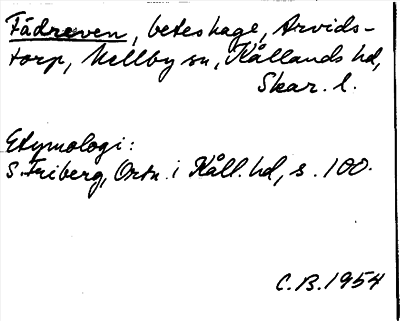 Fädreven, beteshage, Arvids-
torp, Mellby sn, Kållands hd,
Skar. l.
Etymologi:
S. Friberg, Ortn. i Kåll. hd, s. 100.
C.B. 1954